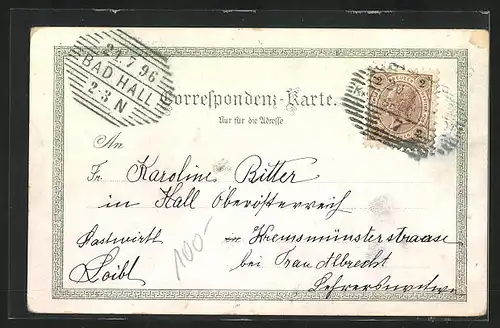 24.7.96
BAD HALL
2-3 N
Correspondenz-Karte.
Nur für die Adresse
An
Fr. Karoline Ritter
in Hall Oberösterreich
Gastwirth Kremsmünsterstraase
Loibl bei Frau Albrecht
Lehrerswitwe
100-
2 2
7